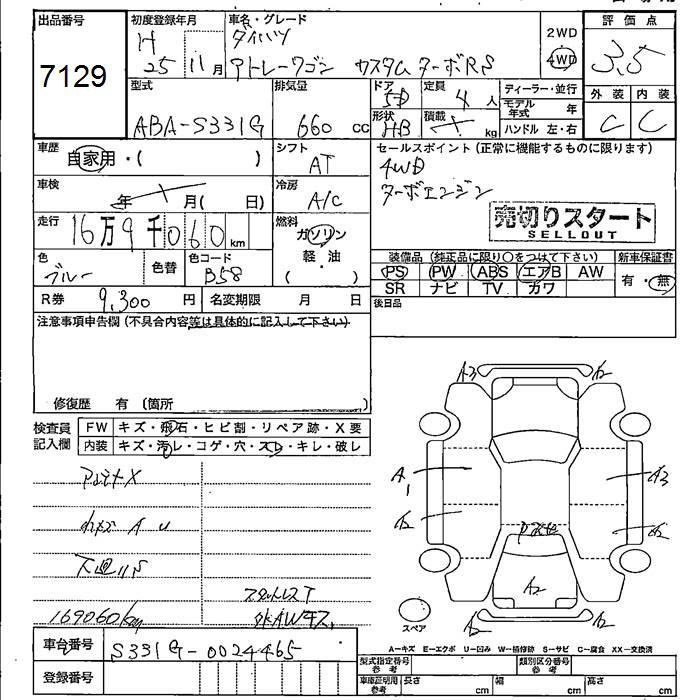 出品番号
7129
初度登録年月
H
25 11月
車名・グレード
ダイハツ
アトレーワゴン カスタム ターボRS
2WD
4WD
評価点
3.5
外装 内装
C C
型式
ABA-S331G
排気量
660 cc
ドア
5D
形状
HB
定員
4 人
積載
kg
ディーラー・並行
モデル年式 年
ハンドル 左・右
車歴
自家用・( )
シフト
AT
セールスポイント (正常に機能するものに限ります)
4WD
ターボエンジン
売切りスタート
SELLOUT
車検
年 月( 日)
冷房
A/C
走行
16万9千060 km
燃料
ガソリン
軽・油
( )
色
ブルー
色替
色コード
B58
装備品 (純正品に限り○をつけて下さい)
PS PW ABS エアB AW
SR ナビ TV カワ
新車保証書
有・無
R券 9,300 円
名変期限 月 日
後日品
注意事項申告欄 (不具合内容等は具体的に記入して下さい)
修復歴 有 (箇所
検査員
記入欄
FW キズ・飛石・ヒビ割・リペア跡・X要
内装 キズ・汚レ・コゲ・穴・スレ・キレ・破レ
A3 A2
A1 A3
A2 A2
A2
A2 A2
スペア
小キズ A U
下廻リS
169060km
車台番号 S331G-0024465
登録番号
A-キズ E-エクボ U-凹み W-補修跡 S-サビ C-腐食 XX-交換済
型式指定番号
参考
類別区分番号
参考
車庫証明用
参考
長さ cm 幅 cm 高さ cm